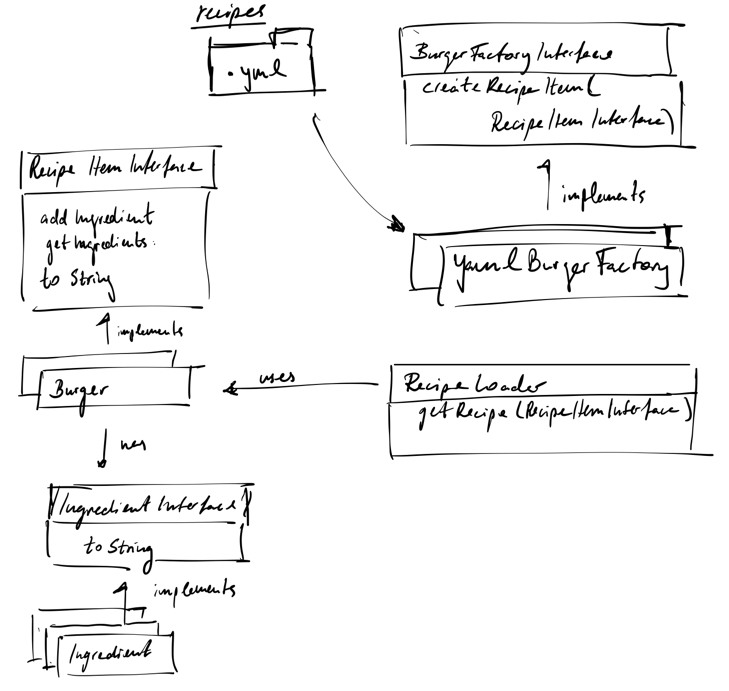 recipes
.yml
BurgerFactoryInterface
createRecipeItem(
RecipeItemInterface)
Recipe Item Interface
implements
add Ingredient
get Ingredients
to String
YamlBurgerFactory
implements
Burger
uses
RecipeLoader
getRecipe(RecipeItemInterface)
uses
IngredientInterface
to String
implements
Ingredient